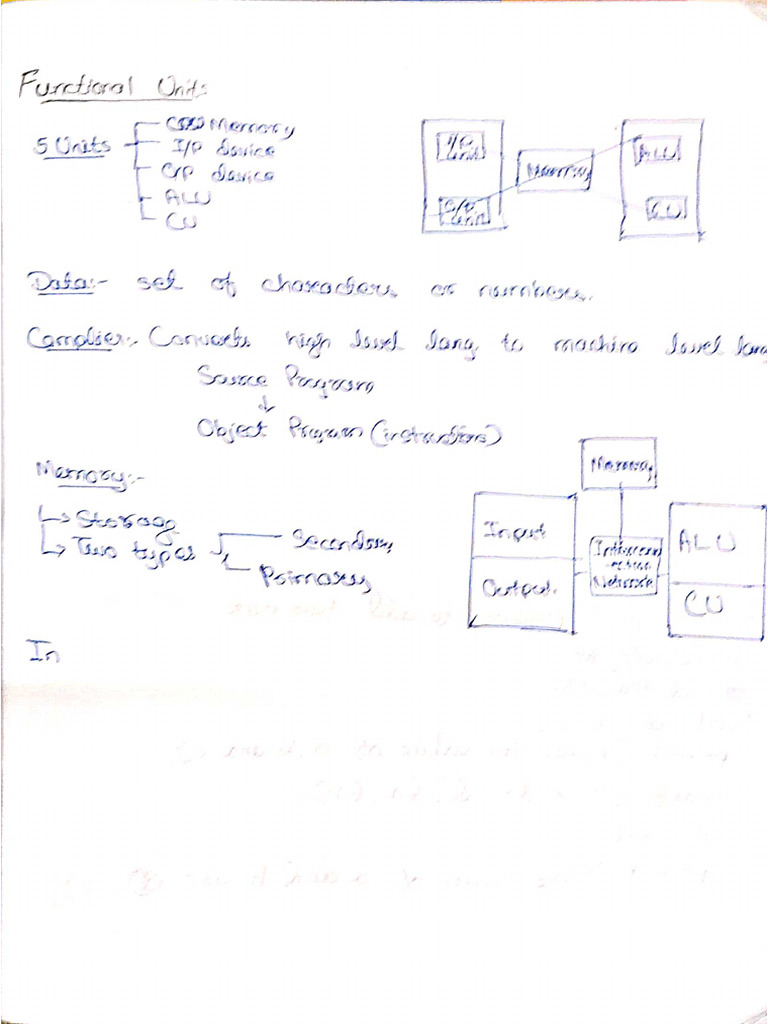 Functional Units
5 Units
Memory
I/P device
O/P device
ALU
CU
I/P Unit
O/P Unit
Memory
ALU
CU
Data:- set of characters or numbers.
Complier:- Converts high level lang to machine level lang
Source Program
↓
Object Program (instructions)
Memory:-
↳ Storage
↳ Two types
Secondary
Primary
Memory
Input
Output.
Interconn
-ection
Network
ALU
CU
In